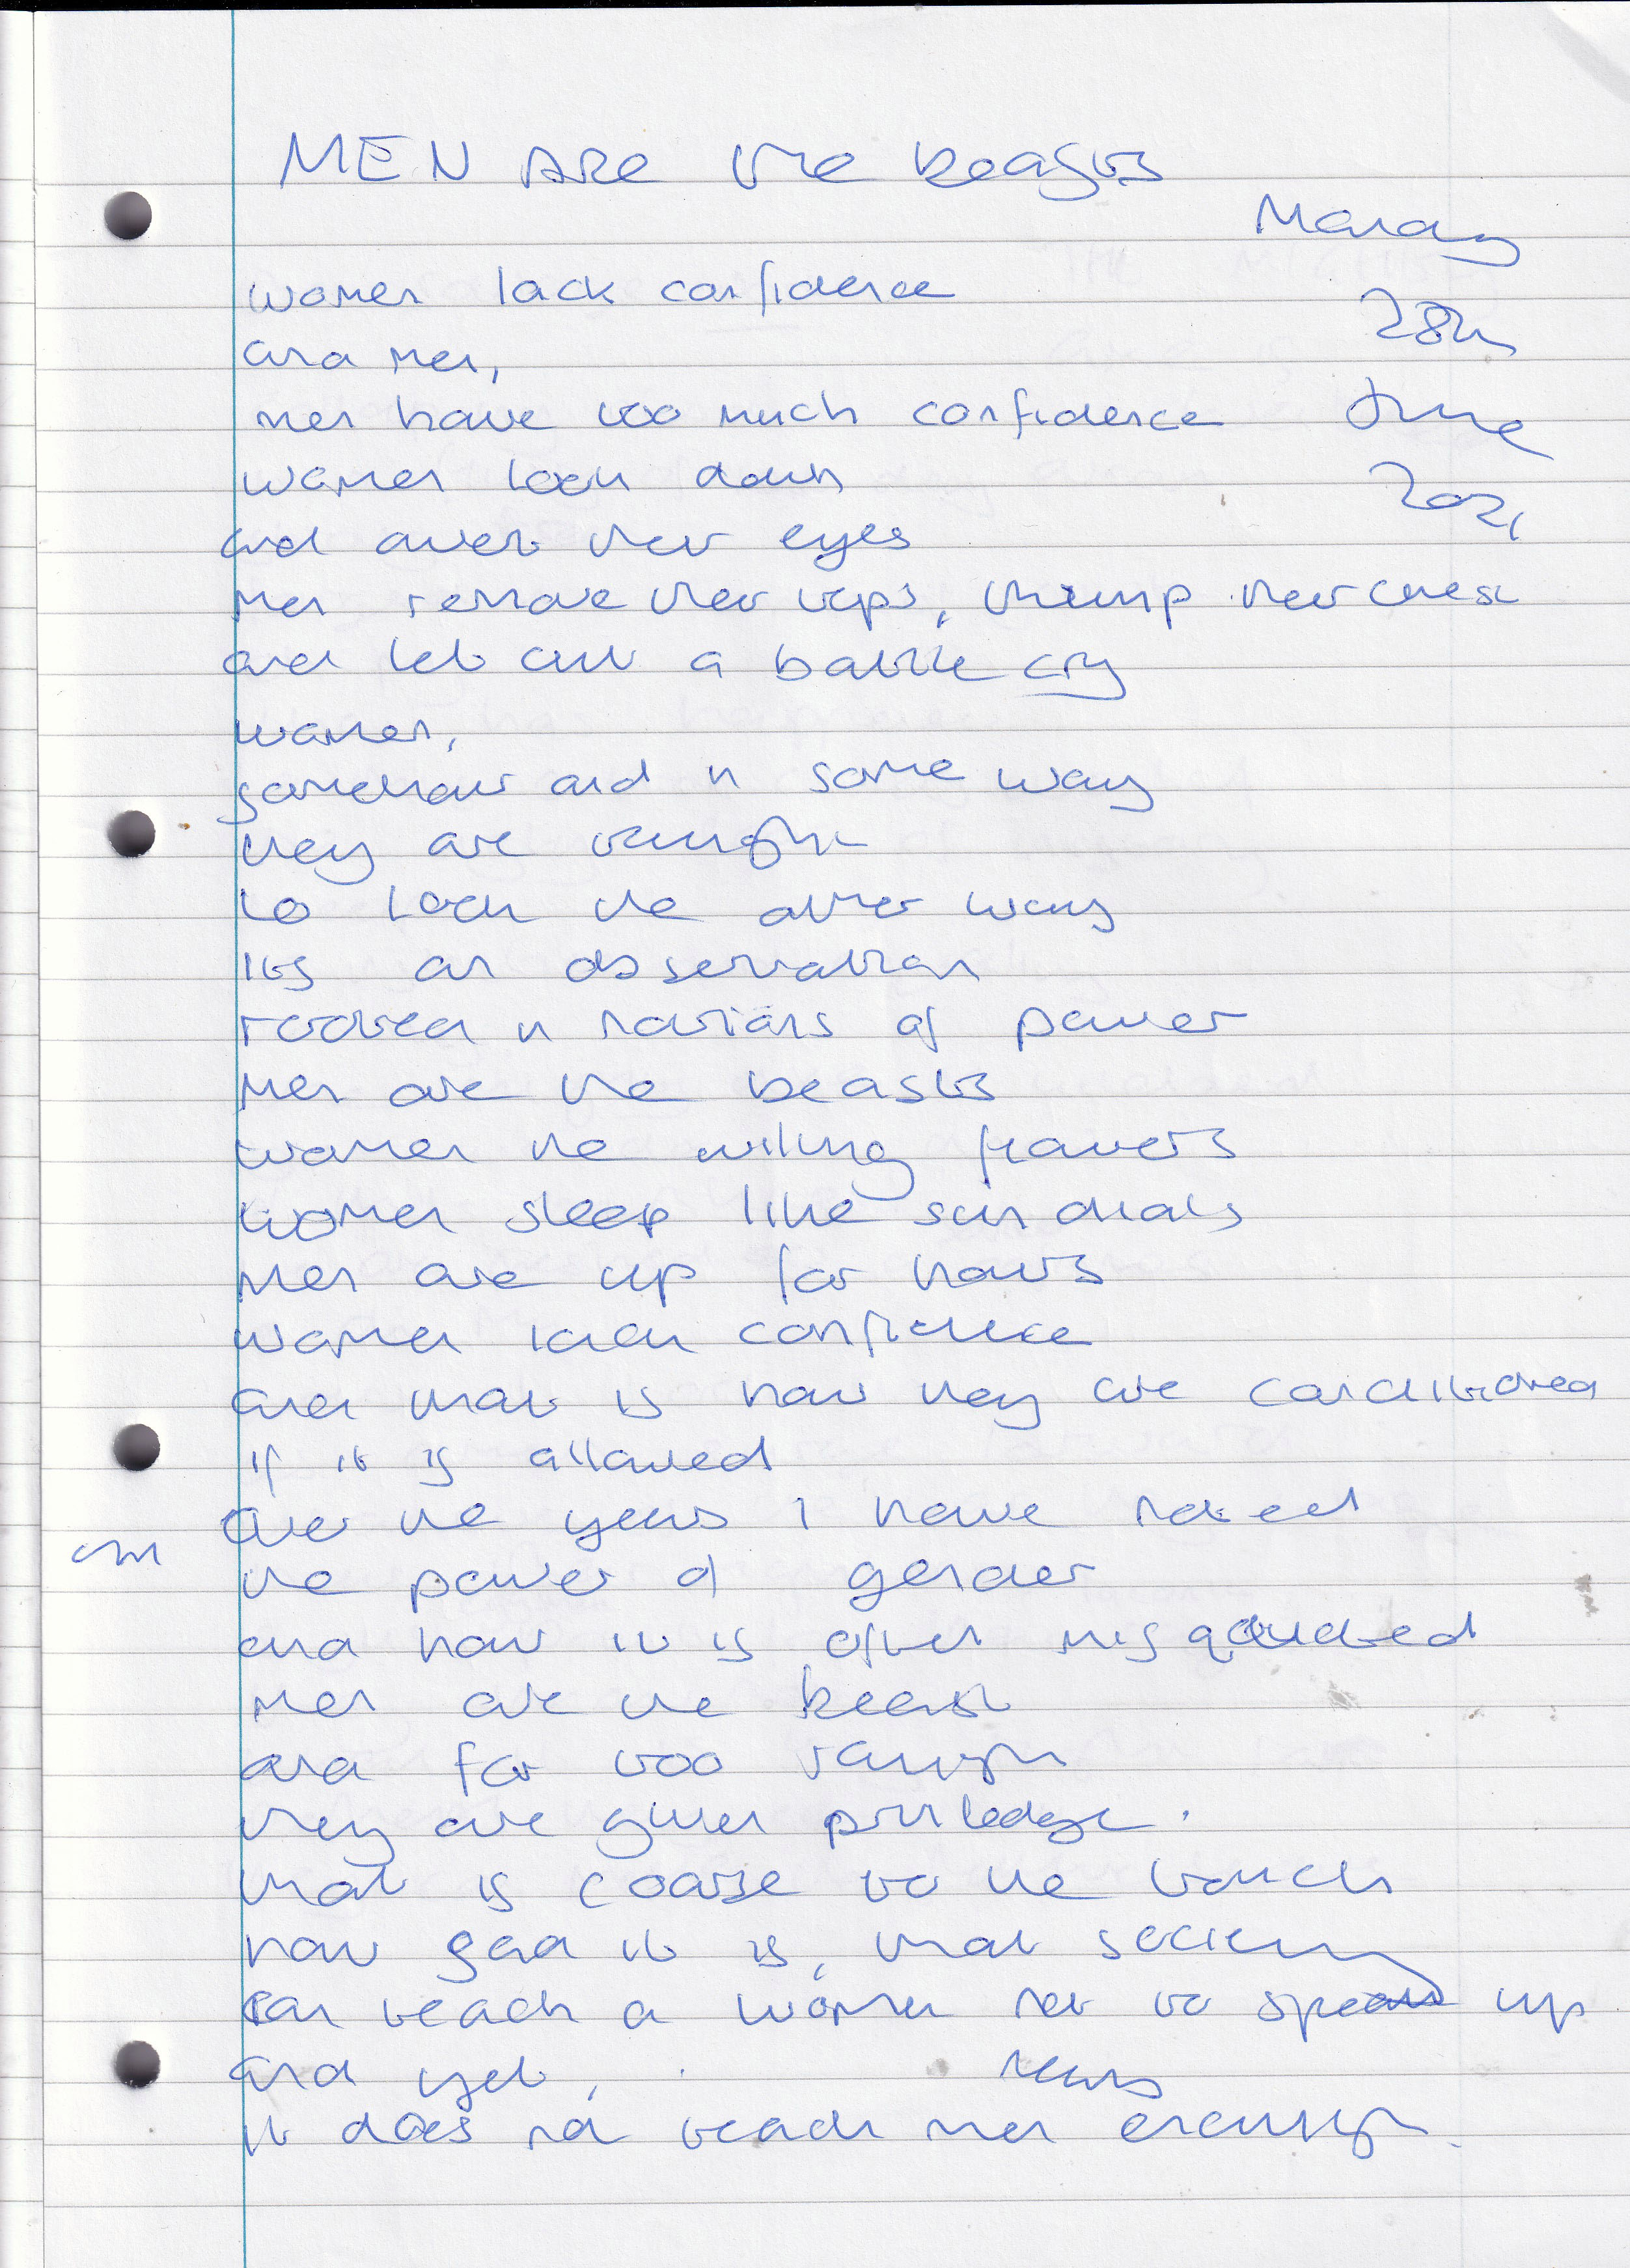 MEN ARE the beasts
Monday
28th
June
2021
women lack confidence
and men,
men have too much confidence
women look down
and avert their eyes
men remove their tops, thump their chest
and let out a battle cry
women,
somehow and in some way
they are taught
to look the other way
its an observation
rooted in notions of power
men are the beasts
women the wilting flowers
women sleep like sun dials
men are up for hours
women lack confidence
and that is how they are conditioned
if it is allowed
over the years I have noted
the power of gender
and how it is often misquoted
men are the beast
and far too rough
they are given priviledge
that is coarse to the touch
how sad it is, that society
can teach a women not to speak up
and yet,
it does not teach men enough.